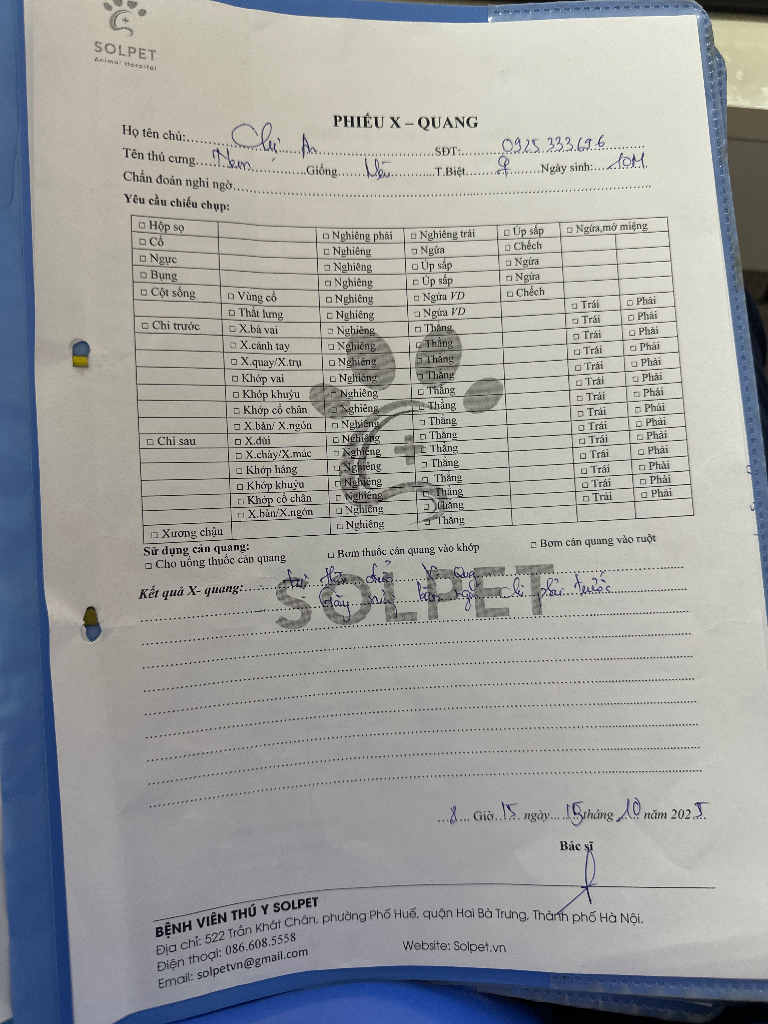 SOLPET
Animal Hospital
PHIẾU X – QUANG
Họ tên chủ: Chị An SĐT: 0925.333.696
Tên thú cưng Nem Giống Mèo T.Biệt ♀ Ngày sinh: 10M
Chẩn đoán nghi ngờ
Yêu cầu chiếu chụp:
□ Hộp sọ □ Nghiêng phải □ Nghiêng trái □ Úp sấp □ Ngửa,mở miệng
□ Cổ □ Nghiêng □ Ngửa □ Chếch
□ Ngực □ Nghiêng □ Úp sấp □ Ngửa
□ Bụng □ Nghiêng □ Úp sấp □ Ngửa
□ Cột sống □ Vùng cổ □ Nghiêng □ Ngửa VD □ Chếch
□ Thắt lưng □ Nghiêng □ Ngửa VD
□ Chi trước □ X.bả vai □ Nghiêng □ Thẳng □ Trái □ Phải
□ X.cánh tay □ Nghiêng □ Thẳng □ Trái □ Phải
□ X.quay/X.trụ □ Nghiêng □ Thẳng □ Trái □ Phải
□ Khớp vai □ Nghiêng □ Thẳng □ Trái □ Phải
□ Khớp khuỷu □ Nghiêng □ Thẳng □ Trái □ Phải
□ Khớp cổ chân □ Nghiêng □ Thẳng □ Trái □ Phải
□ X.bàn/ X.ngón □ Nghiêng □ Thẳng □ Trái □ Phải
□ Chi sau □ X.đùi □ Nghiêng □ Thẳng □ Trái □ Phải
□ X.chày/X.mác □ Nghiêng □ Thẳng □ Trái □ Phải
□ Khớp háng □ Nghiêng □ Thẳng □ Trái □ Phải
□ Khớp khuỷu □ Nghiêng □ Thẳng □ Trái □ Phải
□ Khớp cổ chân □ Nghiêng □ Thẳng □ Trái □ Phải
□ X.bàn/X.ngón □ Nghiêng □ Thẳng □ Trái □ Phải
□ Xương chậu □ Nghiêng □ Thẳng
Sử dụng cản quang:
□ Cho uống thuốc cản quang □ Bơm thuốc cản quang vào khớp □ Bơm cản quang vào ruột
Kết quả X- quang: tại X Quang
Gãy bàn ngón chi phải trước
SOLPET
8 Giờ 15 ngày 15 tháng 10 năm 2025
Bác sĩ
BỆNH VIỆN THÚ Y SOLPET
Địa chỉ: 522 Trần Khát Chân, phường Phố Huế, quận Hai Bà Trưng, Thành phố Hà Nội.
Điện thoại: 086.608.5558
Website: Solpet.vn
Email: solpetvn@gmail.com